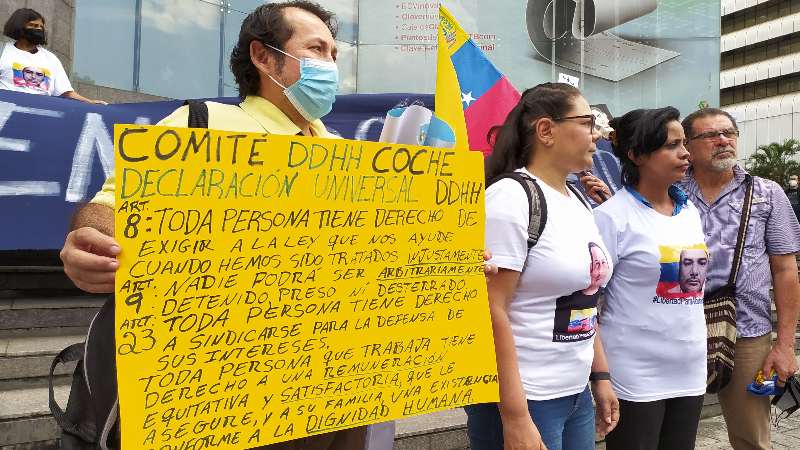 COMITÉ DDHH COCHE
DECLARACIÓN UNIVERSAL DDHH
ART.
8: TODA PERSONA TIENE DERECHO DE
EXIGIR A LA LEY QUE NOS AYUDE
CUANDO HEMOS SIDO TRATADOS INJUSTAMENTE
ART. NADIE PODRÁ SER ARBITRARIAMENTE
9: DETENIDO, PRESO NI DESTERRADO.
ART: TODA PERSONA TIENE DERECHO
23 A SINDICARSE PARA LA DEFENSA DE
SUS INTERESES.
TODA PERSONA QUE TRABAJA TIENE
DERECHO A UNA REMUNERACIÓN
EQUITATIVA Y SATISFACTORIA, QUE LE
ASEGURE, Y A SU FAMILIA, UNA EXISTENCIA
CONFORME A LA DIGNIDAD HUMANA.